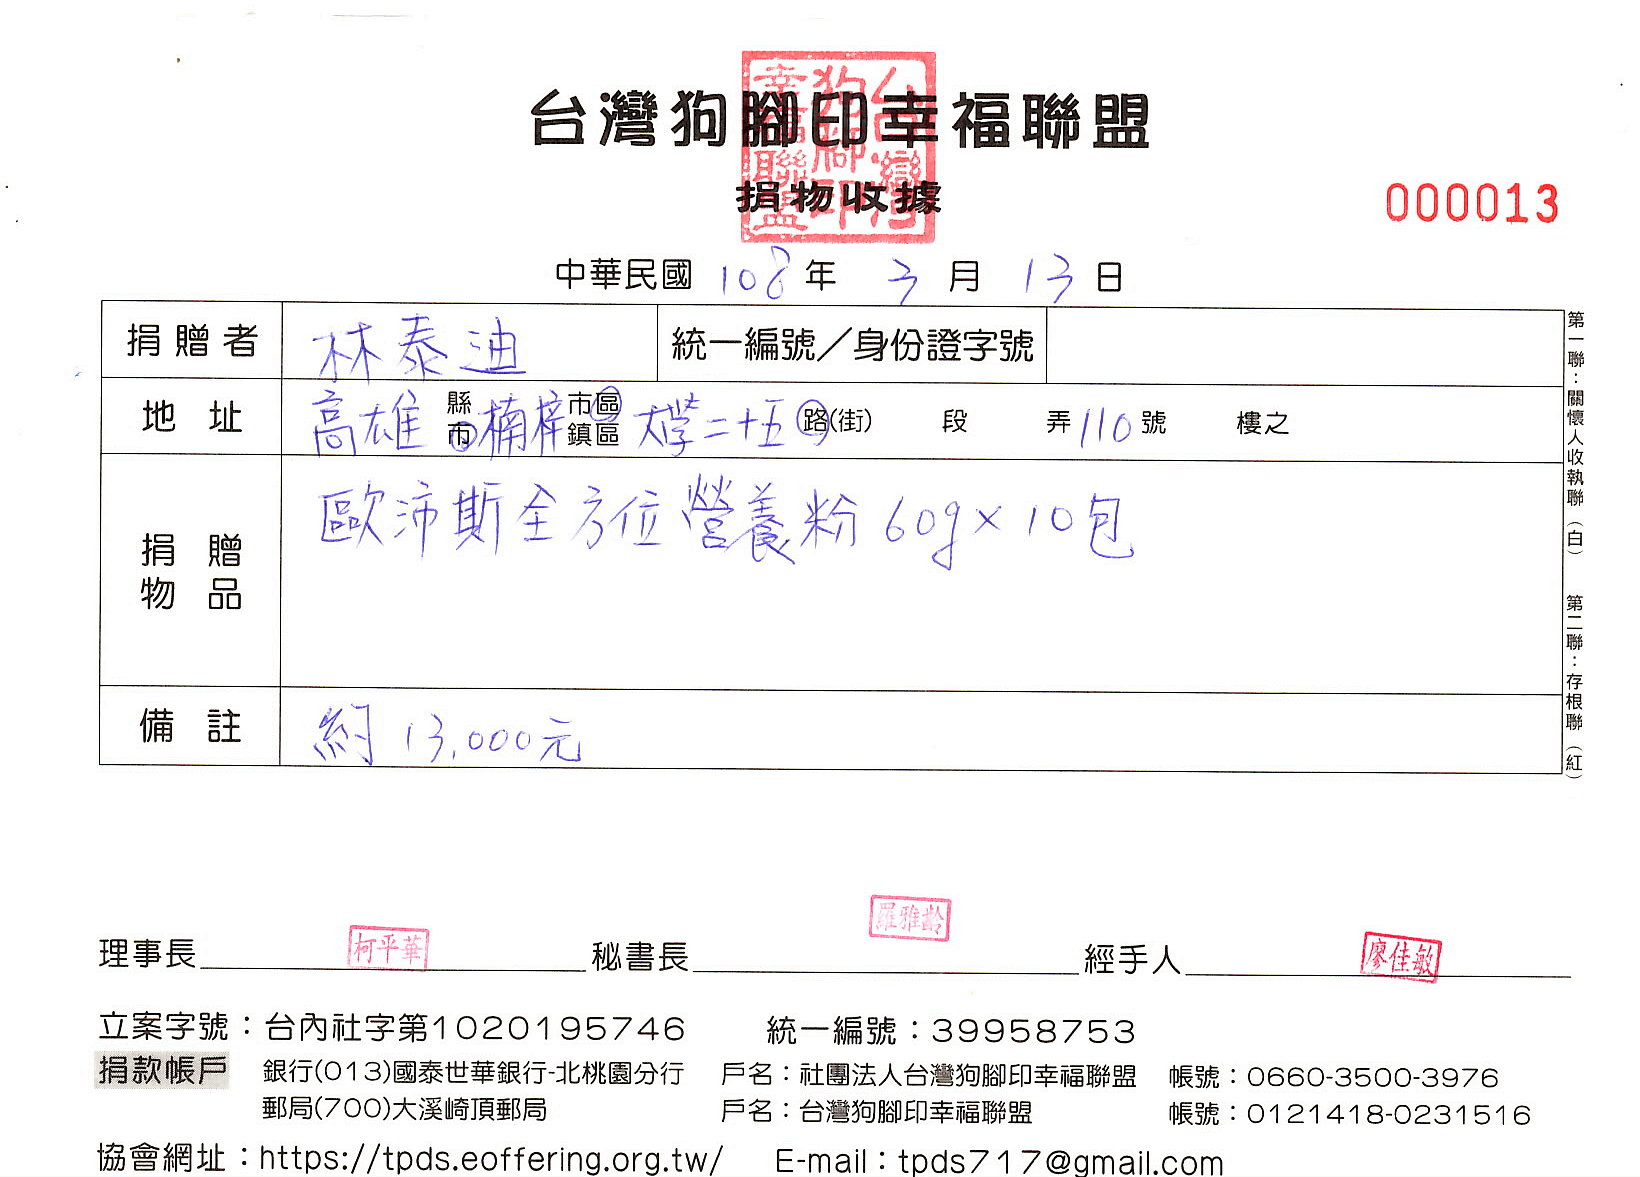 台灣狗腳印幸福聯盟
台灣狗腳印幸福聯盟
捐物收據
000013
中華民國 108 年 3 月 13 日
捐贈者 林泰迪 統一編號／身份證字號
地址 高雄 縣市 楠梓 市區鎮區 大學二十五 路(街) 段 弄 110 號 樓之
捐贈物品 歐沛斯全方位營養粉 60g × 10包
備註 約 13,000元
第一聯：關懷人收執聯（白） 第二聯：存根聯（紅）
理事長 柯平華 秘書長 羅雅齡 經手人 廖佳敏
立案字號：台內社字第1020195746 統一編號：39958753
捐款帳戶 銀行(013)國泰世華銀行-北桃園分行 戶名：社團法人台灣狗腳印幸福聯盟 帳號：0660-3500-3976
郵局(700)大溪崎頂郵局 戶名：台灣狗腳印幸福聯盟 帳號：0121418-0231516
協會網址：https://tpds.eoffering.org.tw/ E-mail：tpds717@gmail.com